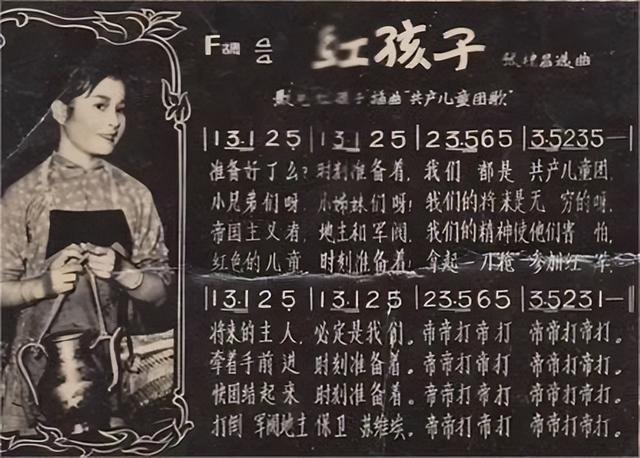 F调
红孩子
选曲
插曲“共产儿童团歌”
|1 3·1 2 5 |1 3·1 2 5 |2 3·5 6 5 |3·5 2 3 5 —|
准备好了么?时刻准备着,我们 都是 共产儿童团,
小兄弟们呀,小姊妹们呀!我们的将来是无 穷的呀,
帝国主义者,地主和军阀,我们的精神使他们害 怕,
红色的儿童 时刻准备着!拿起 刀枪 参加红 军
|1 3·1 2 5 |1 3·1 2 5 |2 3·5 6 5 |3·5 2 3 1 —‖
将来的主人,必定是我们。帝帝打帝打 帝帝打帝打。
牵着手前进 时刻准备着。帝帝打帝打 帝帝打帝打。
快团结起来 时刻准备着。帝帝打帝打 帝帝打帝打。
打倒 军阀地主 保卫 苏维埃。帝帝打帝打 帝帝打帝打。